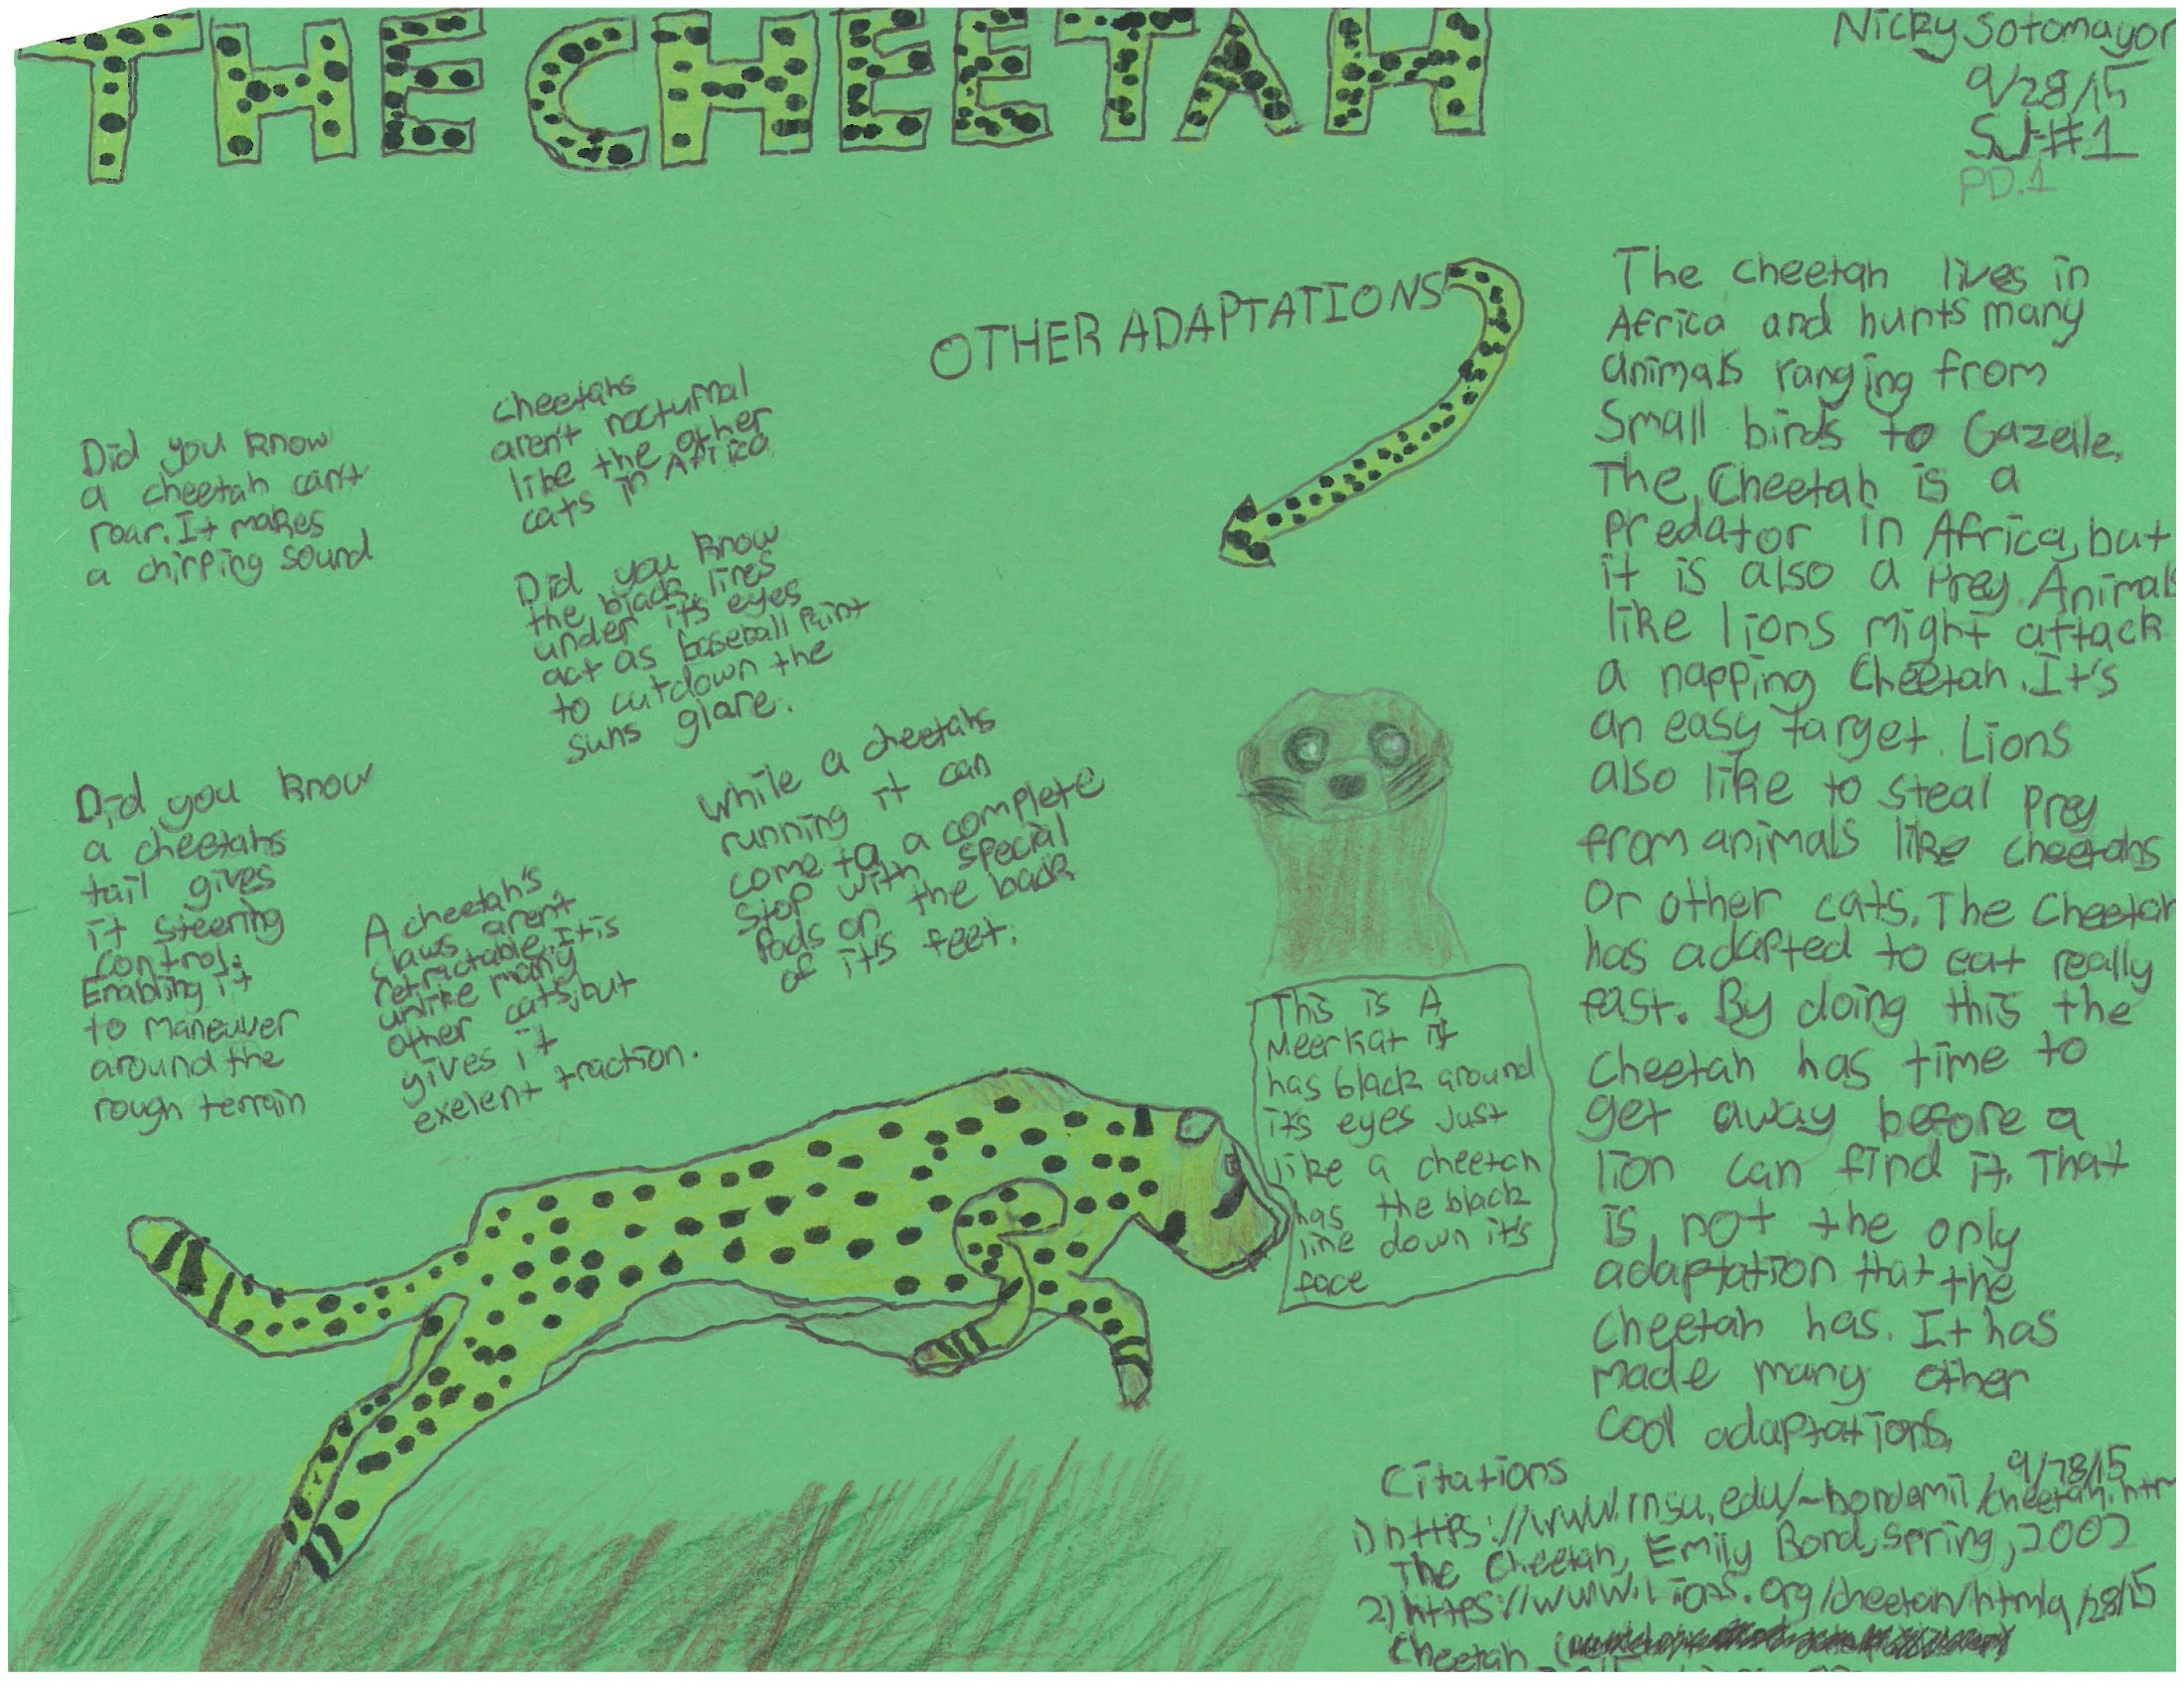 THE CHEETAH
Nicky Sotomayor
9/28/15
SJ#1
PD.1
OTHER ADAPTATIONS
Did you know
a cheetah can't
roar. It makes
a chirping sound
cheetahs
aren't nocturnal
like the other
cats in Africa
Did you know
the black lines
under it's eyes
act as baseball paint
to cutdown the
suns glare.
Did you know
a cheetahs
tail gives
it steering
control.
Enabling it
to maneuver
around the
rough terrain
A cheetah's
claws aren't
retractable. It is
unlike many
other cats, but
gives it
exelent traction.
While a cheetahs
running it can
come to a complete
stop with special
Pads on the back
of it's feet.
This is A
Meerkat it
has black around
it's eyes just
like a cheetah
has the black
line down it's
face
The cheetah lives in
Africa and hunts many
animals ranging from
Small birds to Gazelle.
The Cheetah is a
predator in Africa, but
it is also a Prey. Animals
like lions might attack
a napping Cheetah. It's
an easy target. Lions
also like to steal prey
from animals like cheetahs
Or other cats. The Cheetah
has adapted to eat really
fast. By doing this the
cheetah has time to
get away before a
lion can find it. That
is not the only
adaptation that the
cheetah has. It has
made many other
cool adaptations.
Citations
9/28/15
1) https://www.rnsu.edu/~bondemil/cheetah.htm
The Cheetah, Emily Bond, Spring, 2002
2) https://www. .org/cheetah/html 9/28/15
Cheetah